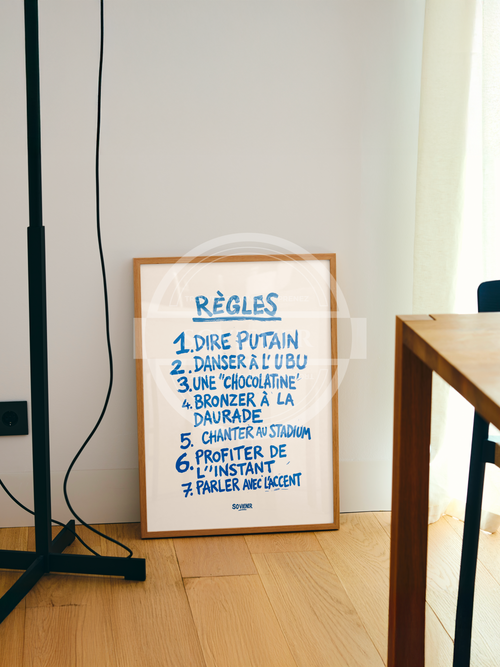 RÈGLES
1. DIRE PUTAIN
2. DANSER À L'UBU
3. UNE "CHOCOLATINE"
4. BRONZER À LA
DAURADE
5. CHANTER AU STADIUM
6. PROFITER DE
L''INSTANT
7. PARLER AVEC L'ACCENT